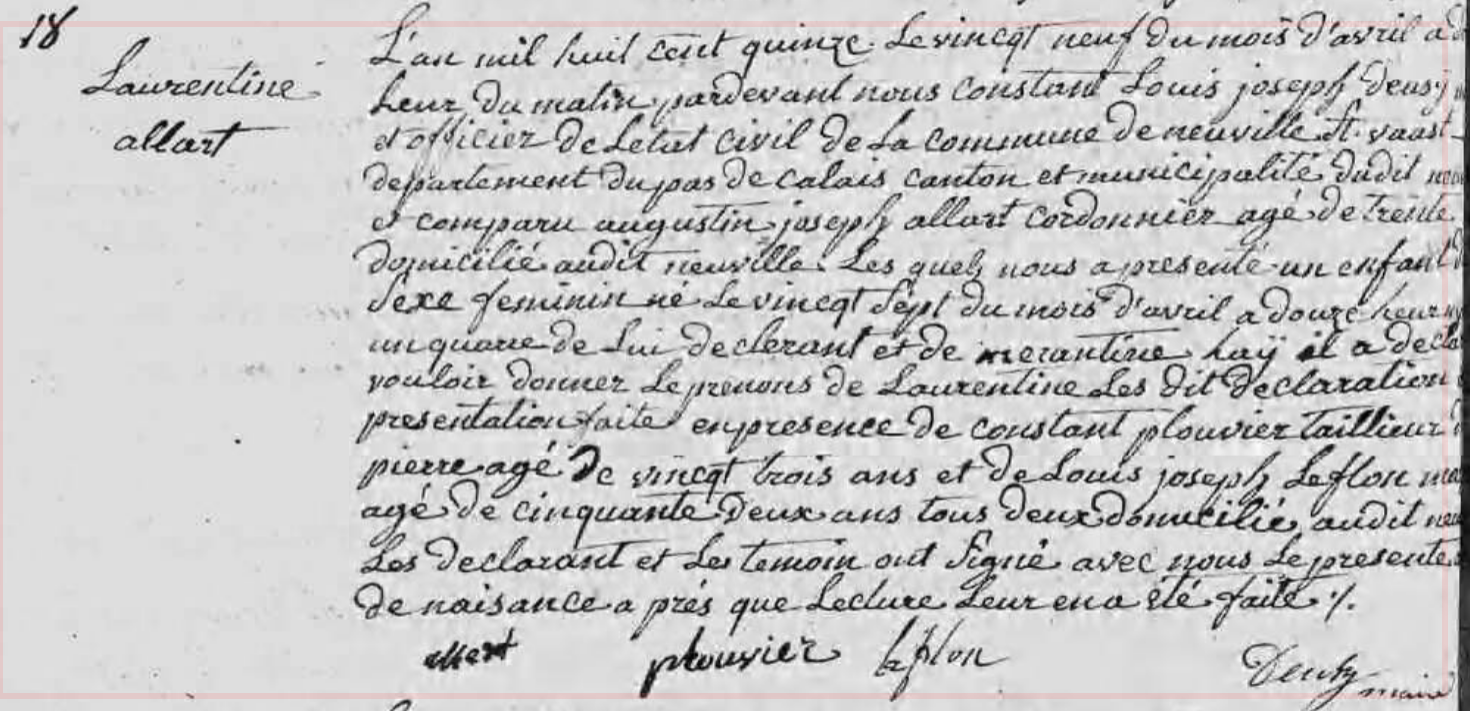 18
Laurentine
allart
L'an mil huit cent quinze Le vincqt neuf du mois d'avril a
heur du matin pardevant nous constant Louis joseph Deusy
et officier de Letat civil de La commune de neuville St. vaast
departement du pas de calais canton et municipalité dudit
et comparu augustin joseph allart cordonnier agé de trente
domicilié audit neuville Les quels nous a presenté un enfant
Sexe feminin né Le vincqt Sept du mois d'avril a douze heur
un quare de Lui declerant et de merantine hay il a
vouloir donner Le prenons de Laurentine Les dit declaration
presentation faite en presence de constant plouvier taillieur
pierre agé de vincqt trois ans et de Louis joseph Leflon
agé de cinquante deux ans tous deux domicilié audit
Les declarant et Les temoin ont Signé avec nous Le presente
de naisance a prés que Lecture Leur en a été faite ./.
allart plouvier Leflon Deusy
maire